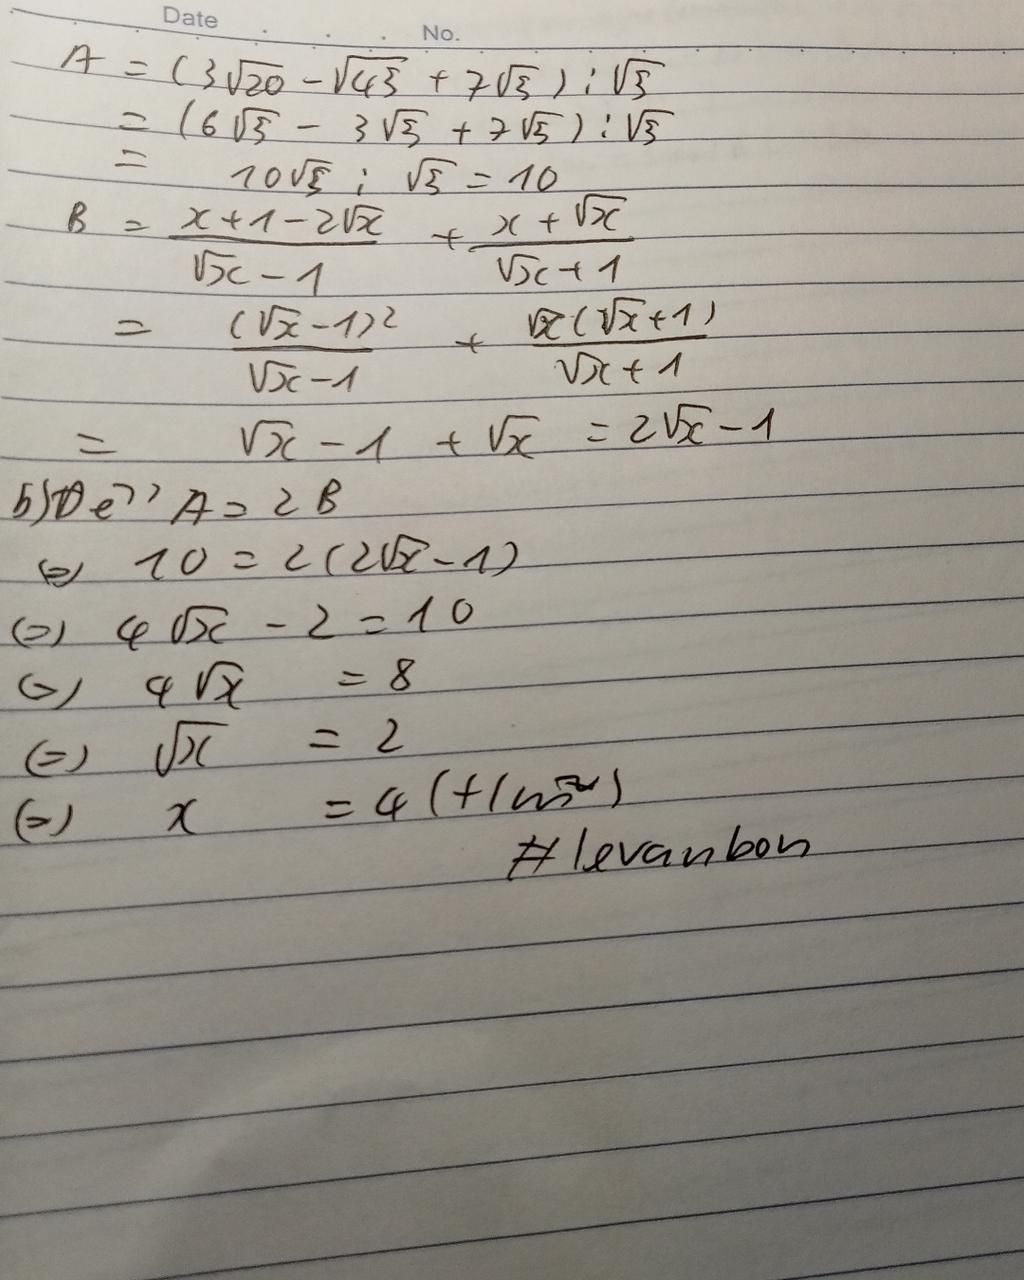 Date No.
A = (3√20 - √45 + 7√5) : √5
= (6√5 - 3√5 + 7√5) : √5
= 10√5 : √5 = 10
B = (x+1-2√x)/(√x-1) + (x+√x)/(√x+1)
= (√x-1)²/(√x-1) + √x(√x+1)/(√x+1)
= √x - 1 + √x = 2√x - 1
b) Để A = 2B
(=) 10 = 2(2√x-1)
(=) 4√x - 2 = 10
(=) 4√x = 8
(=) √x = 2
(=) x = 4 (
#levanbon